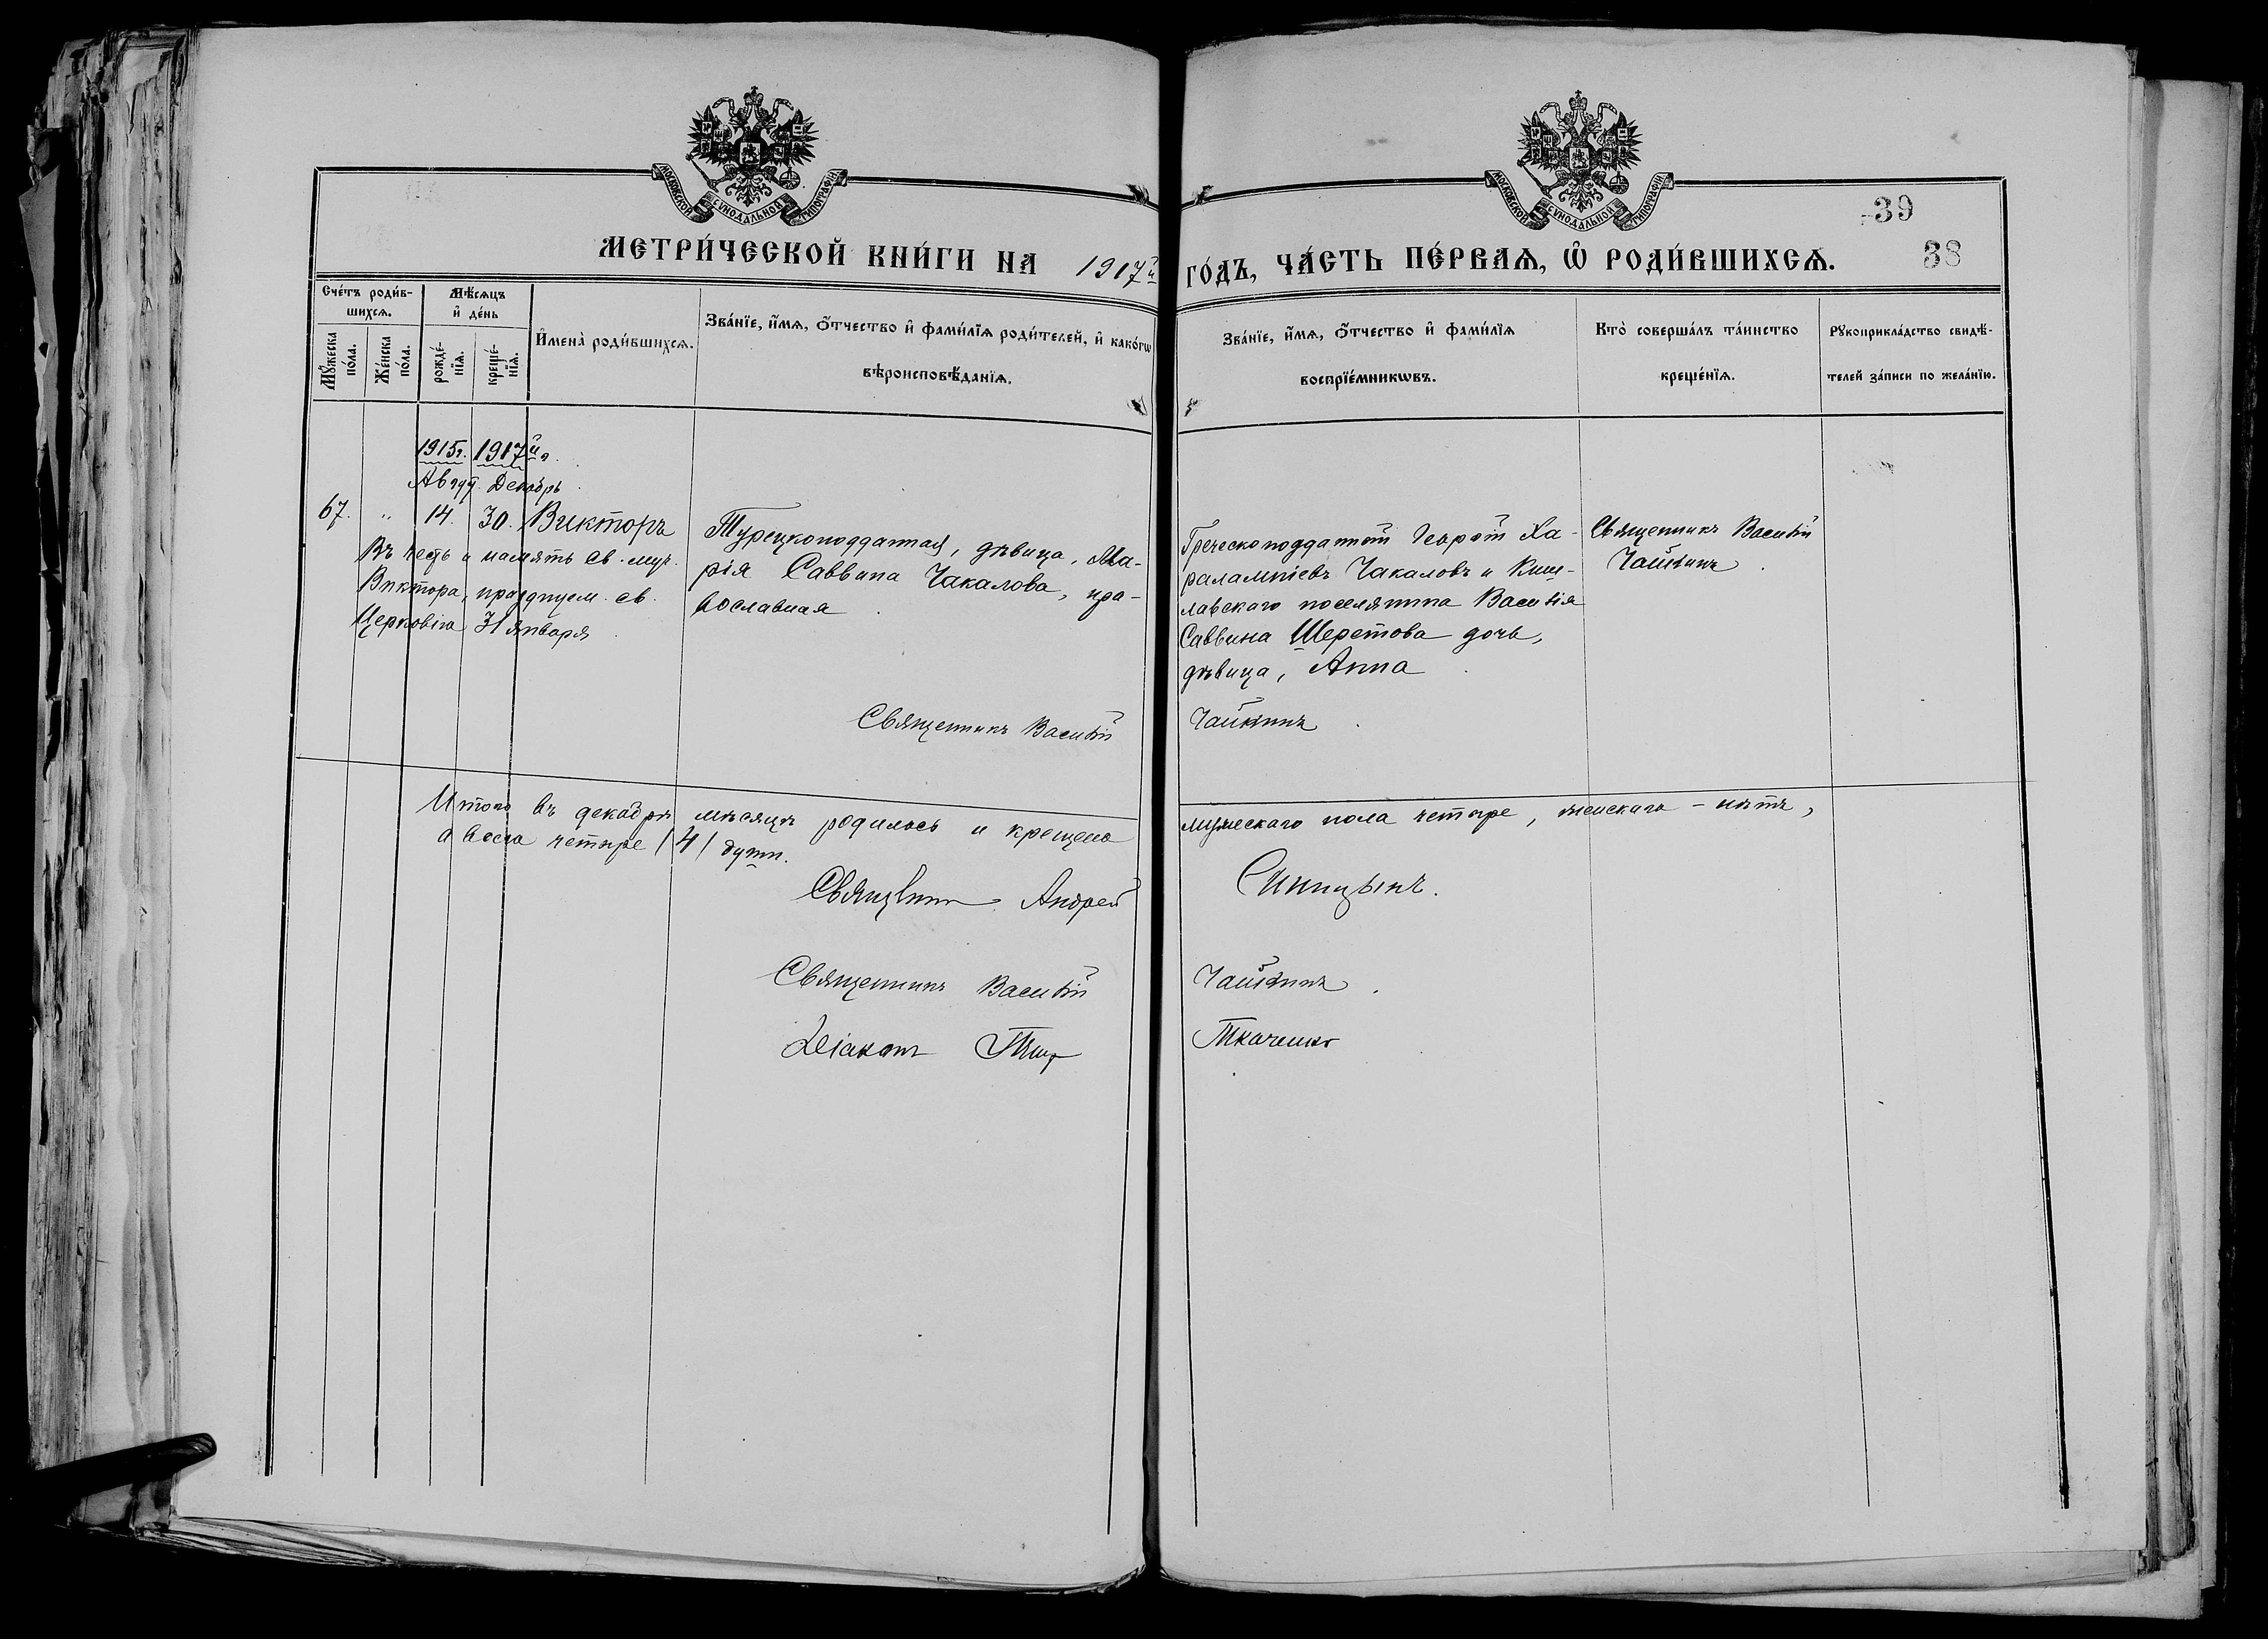 МОСКОВСКОЙ СѴНОДАЛЬНОЙ ТИПОГРАФІИ
МОСКОВСКОЙ СѴНОДАЛЬНОЙ ТИПОГРАФІИ
39
38
МЕТРИ́ЧЕСКОЙ КНИ́ГИ НА 1917й
ГО́ДЪ, ЧА́СТЬ ПЕ́РВАѦ, Ѿ РОДИ́ВШИХСѦ.
Сче́тъ роди́в-
шихсѧ.
Мѣ́сѧцъ
и҆ де́нь
Мꙋ́жеска
по́ла.
Же́нска
по́ла.
рожде́-
нїѧ.
креще́-
нїѧ.
И҆мена̀ роди́вшихсѧ.
Зва́нїе, и҆́мѧ, ѻ҆́тчество и҆ фами́лїѧ роди́телей, и҆ како́гѡ
вѣроисповѣ́данїѧ.
Зва́нїе, и҆́мѧ, ѻ҆́тчество и҆ фами́лїѧ
воспрїе́мникѡвъ.
Кто̀ соверша́лъ та́инство
креще́нїѧ.
Рꙋкоприкла́дство свидѣ́-
телей за́писи по жела́нїю.
1915г. 1917й г.
Авгу. Декабрь
67. " 14. 30. Викторъ
Въ честь и память св. муч.
Виктора, празднуем. св.
Церковію 31 января
Турецкоподданная, дѣвица, Ма-
рія Саввина Чакалова, пра-
вославная
Греческоподданный Георгій Ха-
ралампіевъ Чакаловъ и Киш-
лавскаго поселянина Василія
Саввина Шеретова дочь,
дѣвица, Анна
Священникъ Василій
Чайкинъ
Священникъ Василій Чайкинъ
Итого въ декабрѣ мѣсяцѣ родилось и крещено мужескаго пола четыре, женскаго – нѣтъ,
а всего четыре /4/ душъ.
Священникъ Андрей Синицынъ.
Священникъ Василій Чайкинъ.
Діаконъ Ткаченко